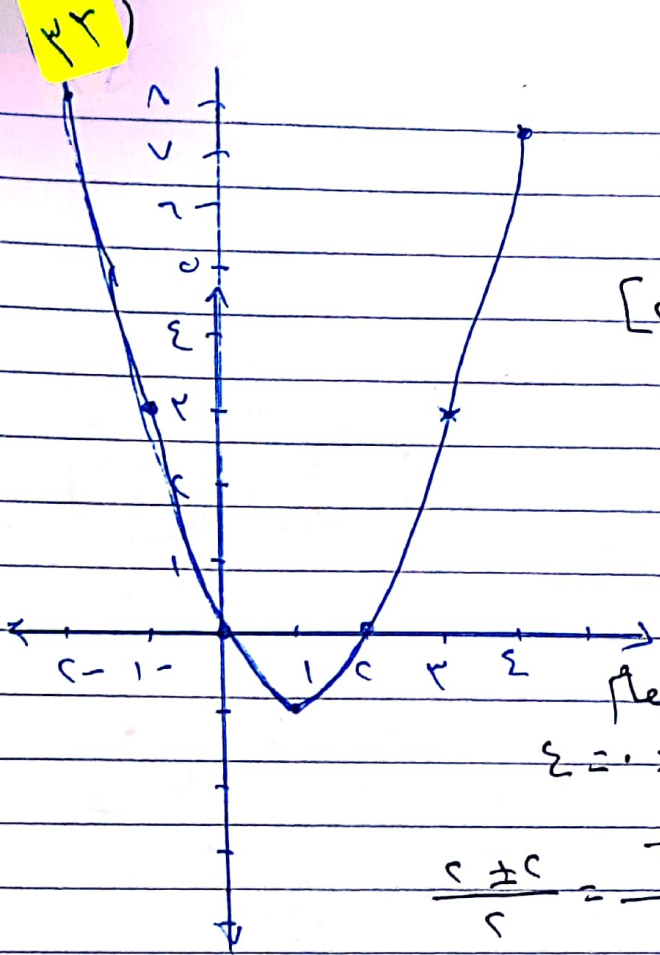 ٣٢)
٨
٧
٦
٥
٤
٣
٢
١
٢- ١- ١ ٢ ٣ ٤
٤ = ٠
٢ ± ٢ =
٢